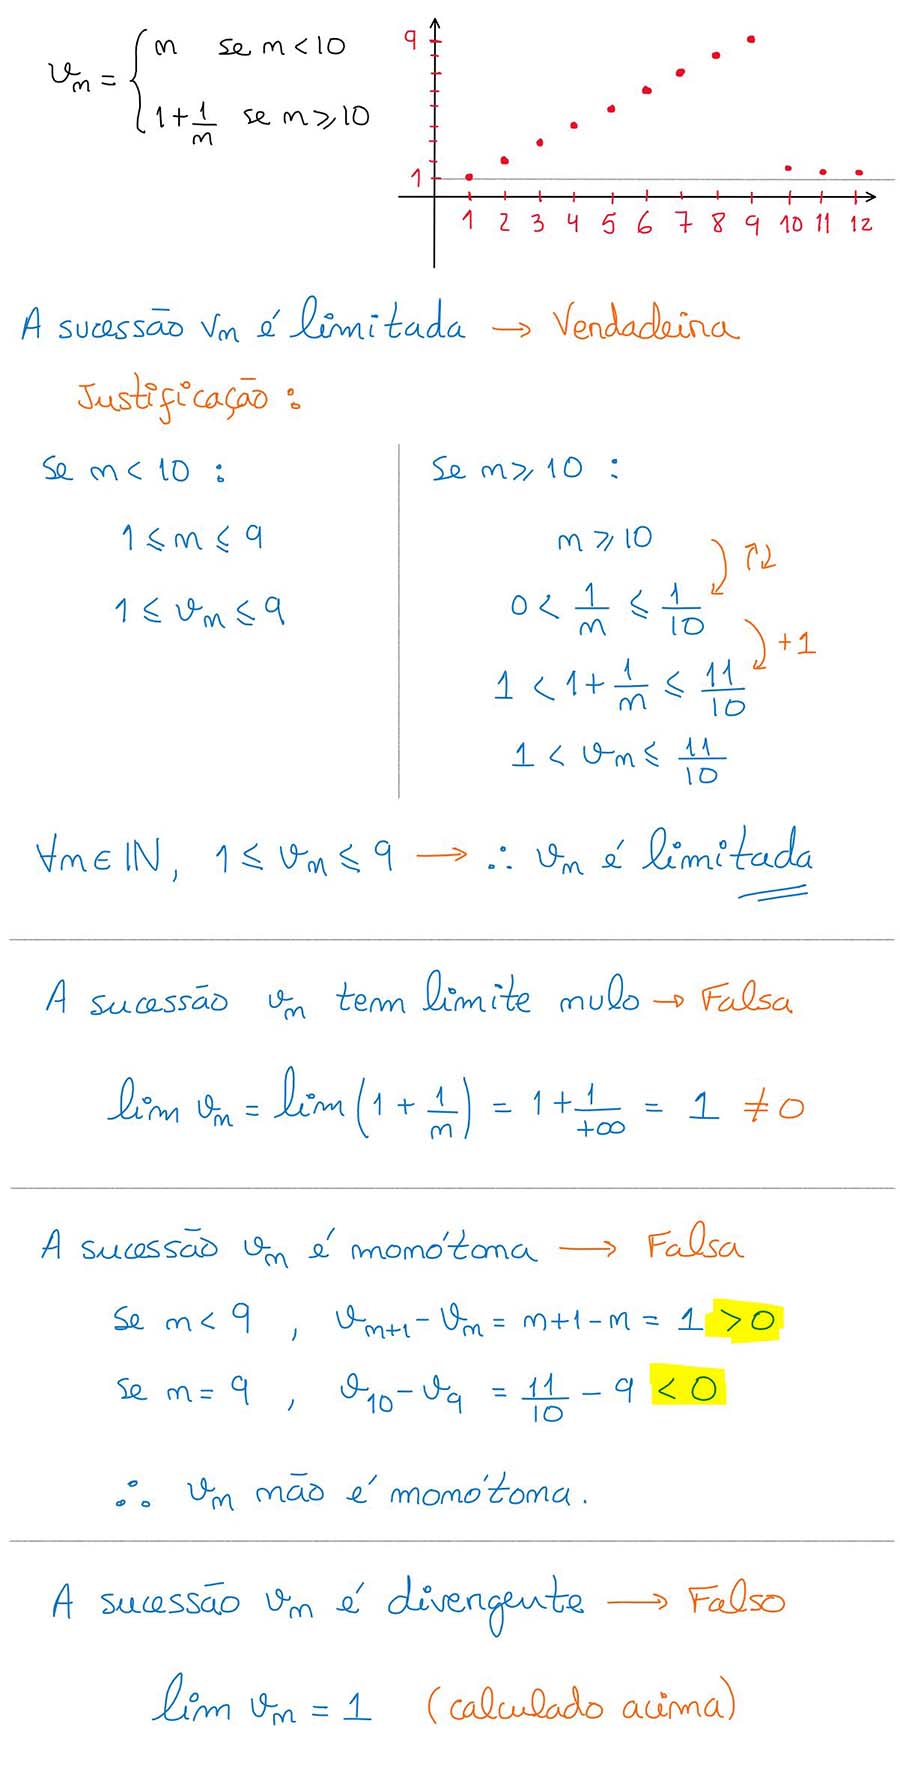 vₙ = { n se n < 10
1 + 1/n se n ⩾ 10
9
1
1 2 3 4 5 6 7 8 9 10 11 12
A sucessão vₙ é limitada → Verdadeira
Justificação :
Se n < 10 :
1 ⩽ n ⩽ 9
1 ⩽ vₙ ⩽ 9
Se n ⩾ 10 :
n ⩾ 10
0 < 1/n ⩽ 1/10
↑↓
1 < 1 + 1/n ⩽ 11/10
+1
1 < vₙ ⩽ 11/10
∀n ∈ IN, 1 ⩽ vₙ ⩽ 9 → ∴ vₙ é limitada
A sucessão vₙ tem limite nulo → Falsa
lim vₙ = lim (1 + 1/n) = 1 + 1/+∞ = 1 ≠ 0
A sucessão vₙ é monótona → Falsa
Se n < 9 , vₙ₊₁ - vₙ = n+1-n = 1 > 0
Se n = 9 , v₁₀ - v₉ = 11/10 - 9 < 0
∴ vₙ não é monótona.
A sucessão vₙ é divergente → Falso
lim vₙ = 1 (calculado acima)